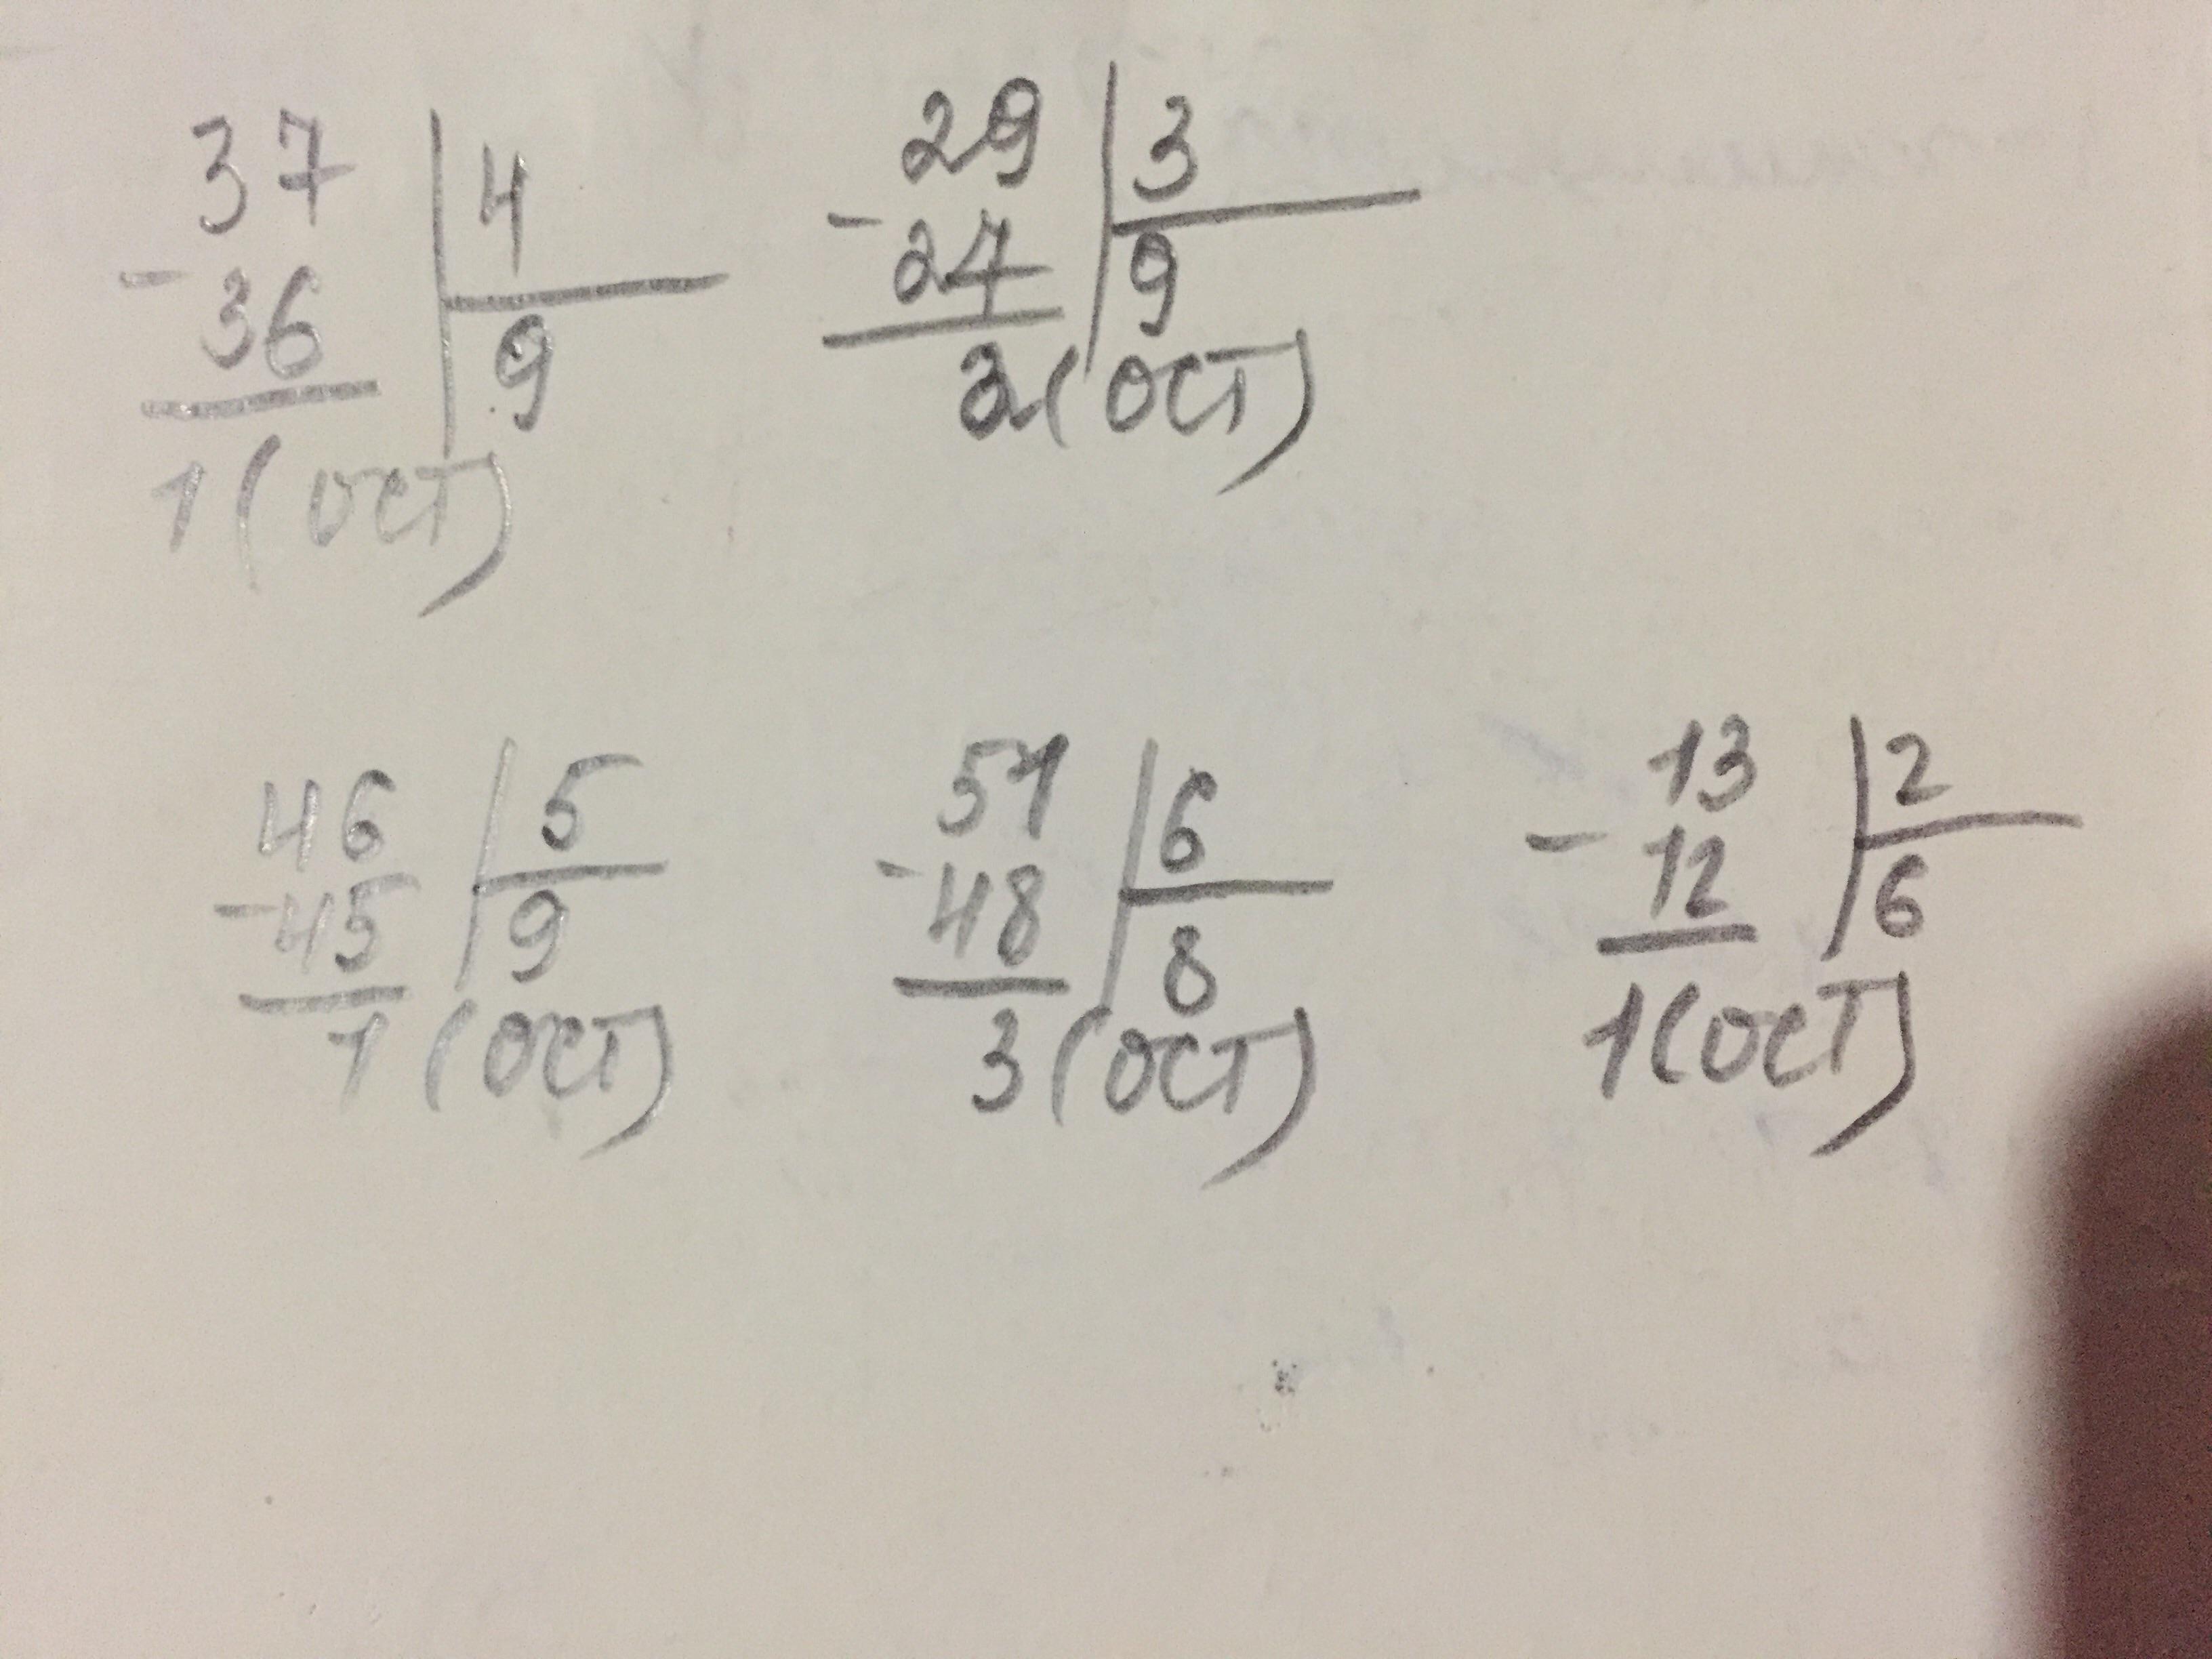 37 4
- 36 9
1 (ост)
29 3
- 27 9
2 (ост)
46 5
- 45 9
1 (ост)
51 6
- 48 8
3 (ост)
13 2
- 12 6
1 (ост)